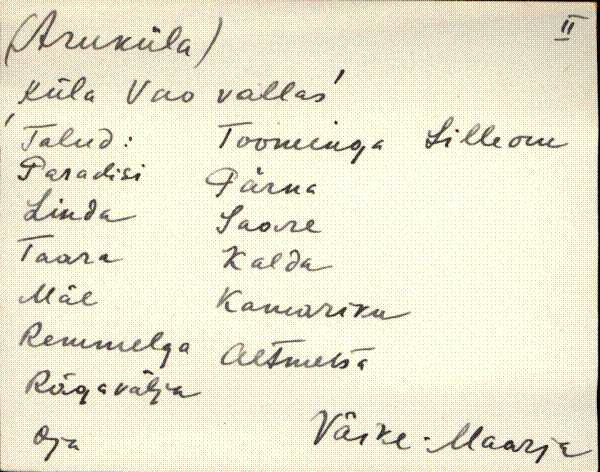 (Aruküla) II
Küla Vao vallas
Talud: Toominga Lilleoru
Paradisi Pärna
Linda Saare
Taara Kalda
Mäe Kamariku
Remmelga Altmetsa
Rägavälja
Oja Väike-Maarja